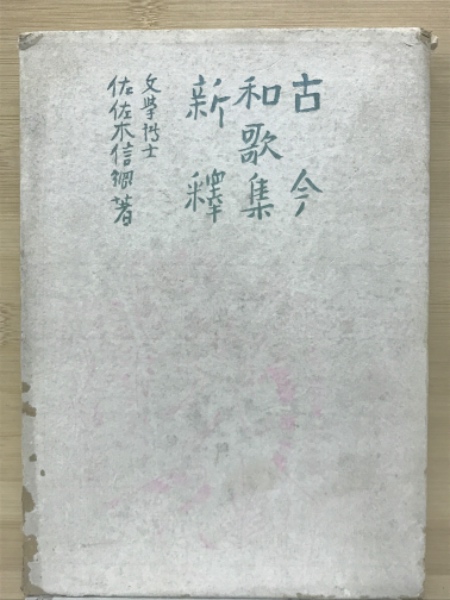 古今
和歌集
新釋
文學博士
佐佐木信綱著